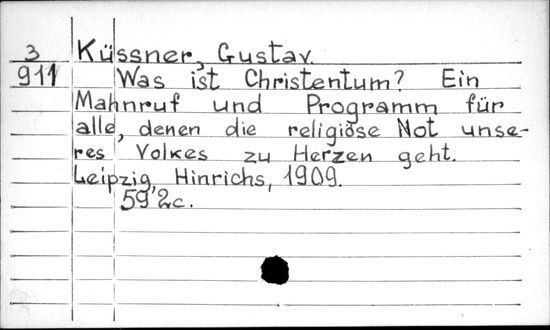 3 Küssner, Gustav.
911 Was ist Christentum? Ein
Mahnruf und Programm für
alle, denen die religiöse Not unse-
res Volkes zu Herzen geht.
Leipzig, Hinrichs, 1909.
59 2c.